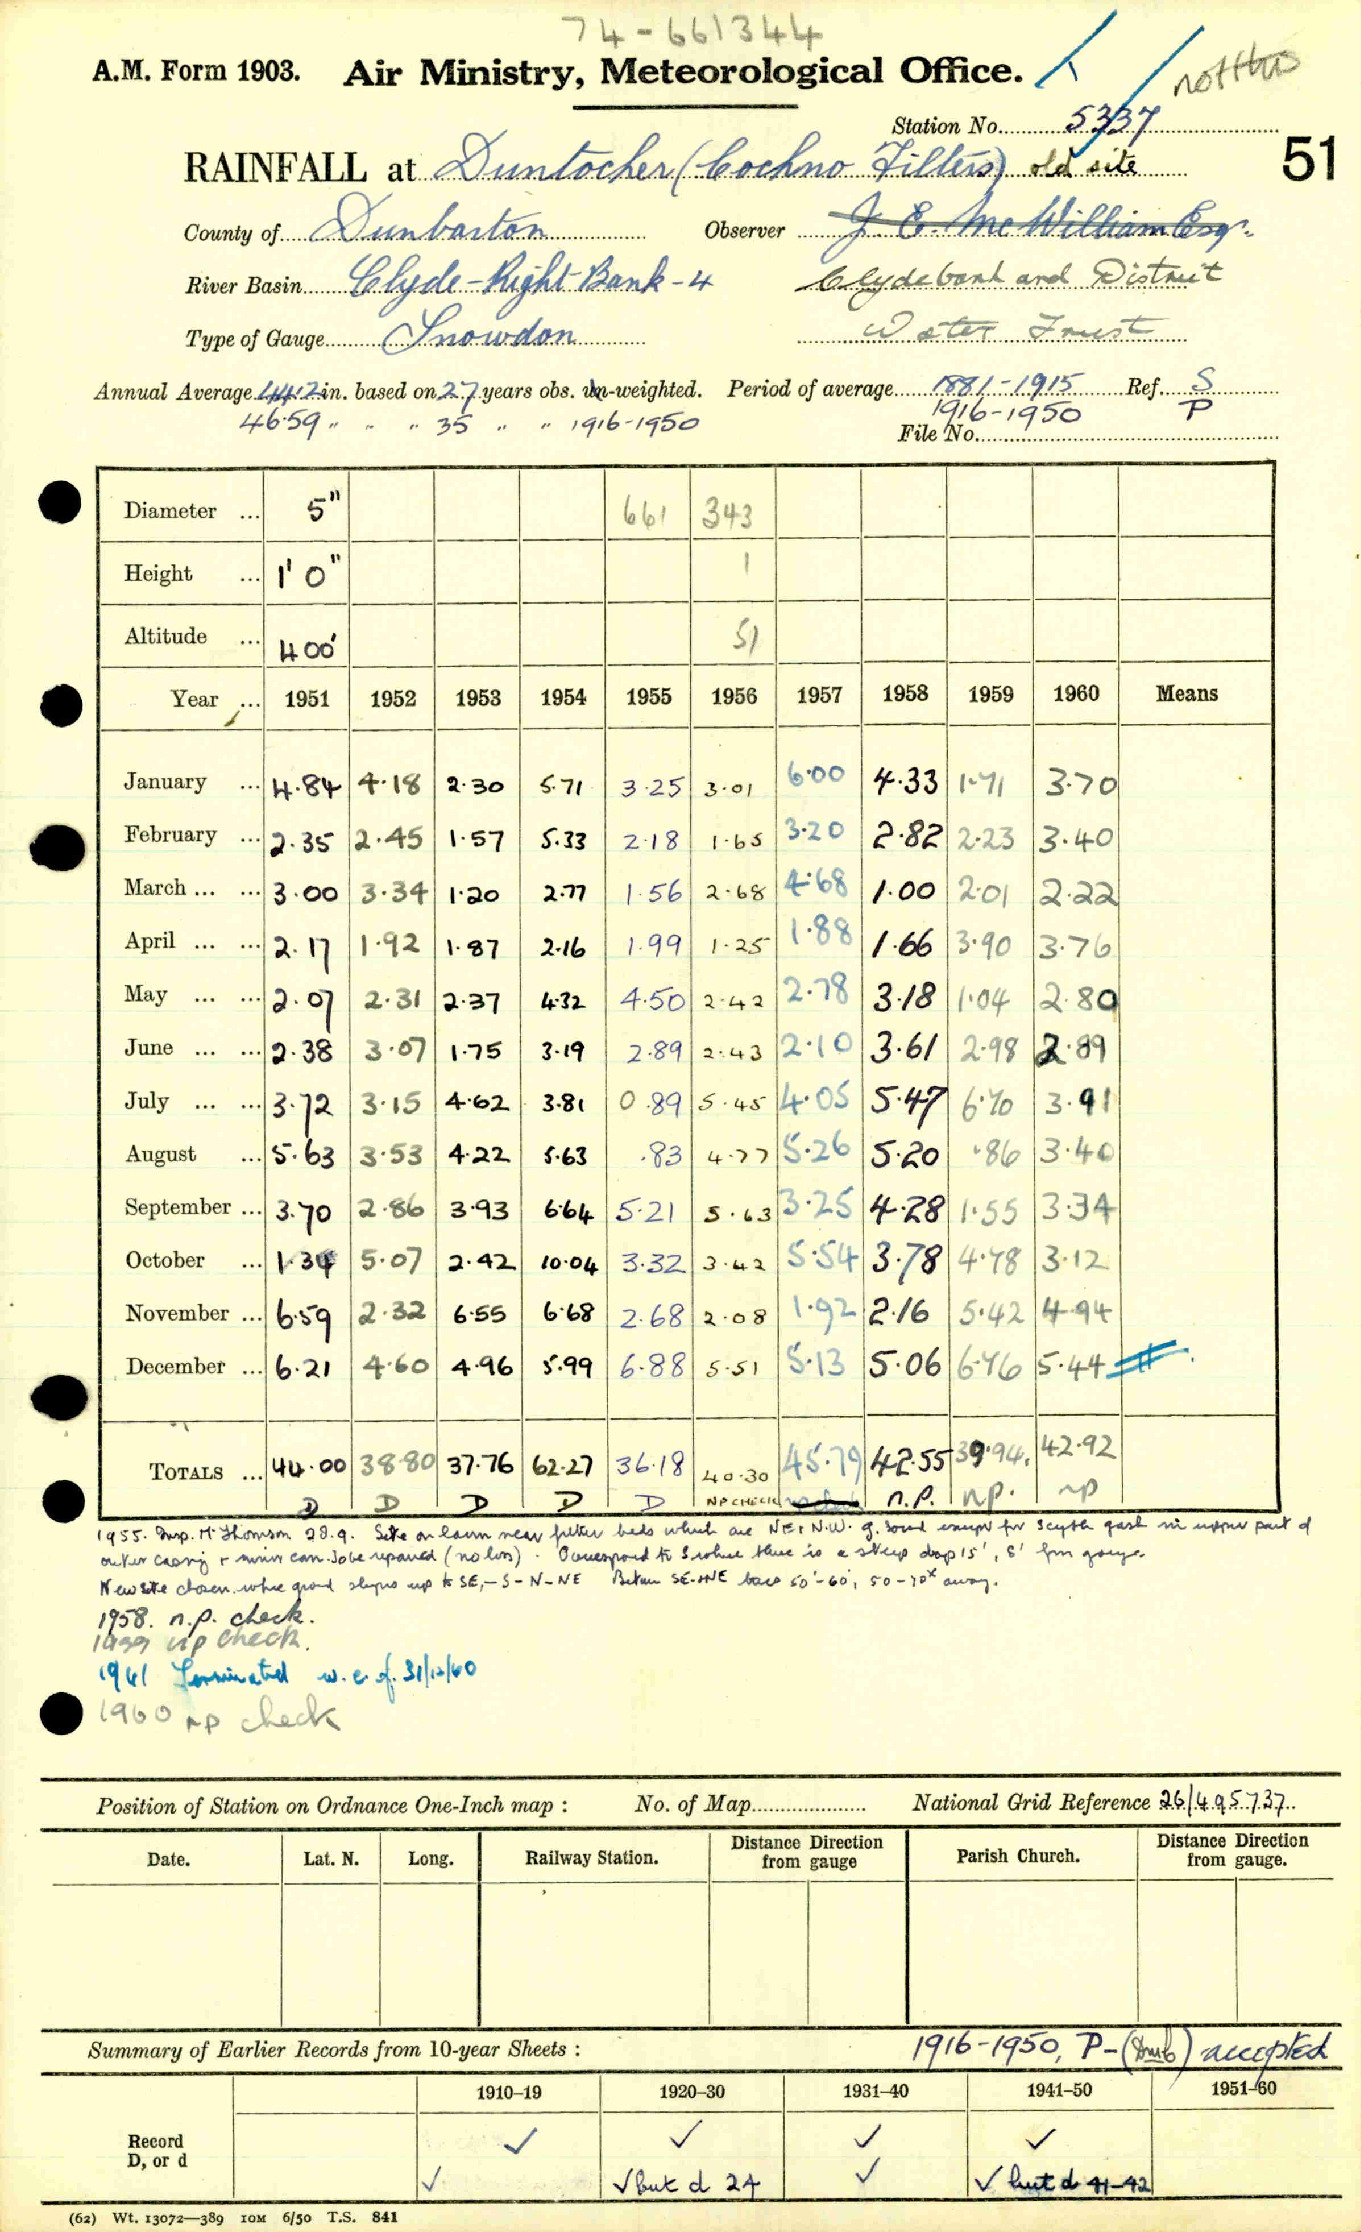 74-661344
A.M. Form 1903. Air Ministry, Meteorological Office. not this
Station No. 5337
RAINFALL at Duntocher (Cochno Filters) old site 51
County of Dunbarton Observer J. E. McWilliam Esq.
River Basin Clyde-Right Bank-4 Clydebank and District
Type of Gauge Snowdon Water Trust
Annual Average 44.2 in. based on 27 years obs. un-weighted. Period of average 1881-1915 Ref. S
46.59 " " " 35 " " 1916-1950 1916-1950 P
File No.
Diameter ... 5" 661 343
Height ... 1' 0" 1
Altitude ... 400' 51
Year ... 1951 1952 1953 1954 1955 1956 1957 1958 1959 1960 Means
January ... 4.84 4.18 2.30 5.71 3.25 3.01 6.00 4.33 1.71 3.70
February ... 2.35 2.45 1.57 5.33 2.18 1.65 3.20 2.82 2.23 3.40
March ... ... 3.00 3.34 1.20 2.77 1.56 2.68 4.68 1.00 2.01 2.22
April ... ... 2.17 1.92 1.87 2.16 1.99 1.25 1.88 1.66 3.90 3.76
May ... ... 2.07 2.31 2.37 4.32 4.50 2.42 2.78 3.18 1.04 2.80
June ... ... 2.38 3.07 1.75 3.19 2.89 2.43 2.10 3.61 2.98 2.89
July ... ... 3.72 3.15 4.62 3.81 0.89 5.45 4.05 5.47 6.70 3.91
August ... 5.63 3.53 4.22 5.63 .83 4.77 5.26 5.20 .86 3.40
September ... 3.70 2.86 3.93 6.64 5.21 5.63 3.25 4.28 1.55 3.34
October ... 1.34 5.07 2.42 10.04 3.32 3.42 5.54 3.78 4.78 3.12
November ... 6.59 2.32 6.55 6.68 2.68 2.08 1.92 2.16 5.42 4.94
December ... 6.21 4.60 4.96 5.99 6.88 5.51 5.13 5.06 6.76 5.44
TOTALS ... 44.00 38.80 37.76 62.27 36.18 40.30 45.79 42.55 39.94. 42.92
D D D D D NP CHECK n.P. np. np
1955. Insp. Mr Thomson 28.9. Site on lawn near filter beds which are NE & N.W. g. sound except for scythe gash in upper part of
outer casing + minor can. To be repaired (no loss). to S where there is a steep drop 15', 8' from gauge.
New site chosen where ground slopes up to SE,-S-N-NE Between SE-NE 50'-60', 50-70x away.
1958. n.p. check.
1959 np check.
1961 Terminated w.e.f. 31/12/60
1960 np check
Position of Station on Ordnance One-Inch map : No. of Map National Grid Reference 26/495737
Date. Lat. N. Long. Railway Station. Distance Direction from gauge Parish Church. Distance Direction from gauge.
Summary of Earlier Records from 10-year Sheets : 1916-1950, P-(Dmb) accepted
1910–19 1920–30 1931–40 1941–50 1951–60
Record ✓ ✓ ✓ ✓
D, or d ✓ ✓ but d 24 ✓ ✓ but d 41-42
(62) Wt. 13072—389 IOM 6/50 T.S. 841